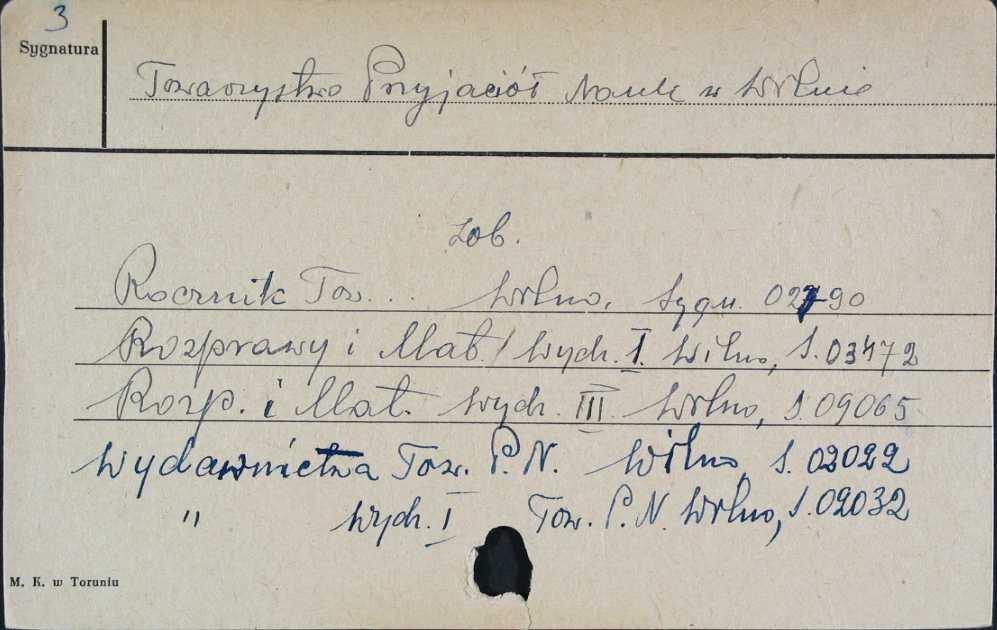 3
Sygnatura
Towarzystwo Przyjaciół Nauk w Wilnie
Zob.
Rocznik Tow. . . Wilno, Sygn. 02790
Rozprawy i Mat./ Wydz. I. Wilno, S. 03472
Rozp. i Mat. Wydz. III. Wilno, S. 09065
Wydawnictwa Tow. P. N. Wilno, S. 02022
" Wydz. I Tow. P. N. Wilno, S. 02032
M. K. w Toruniu